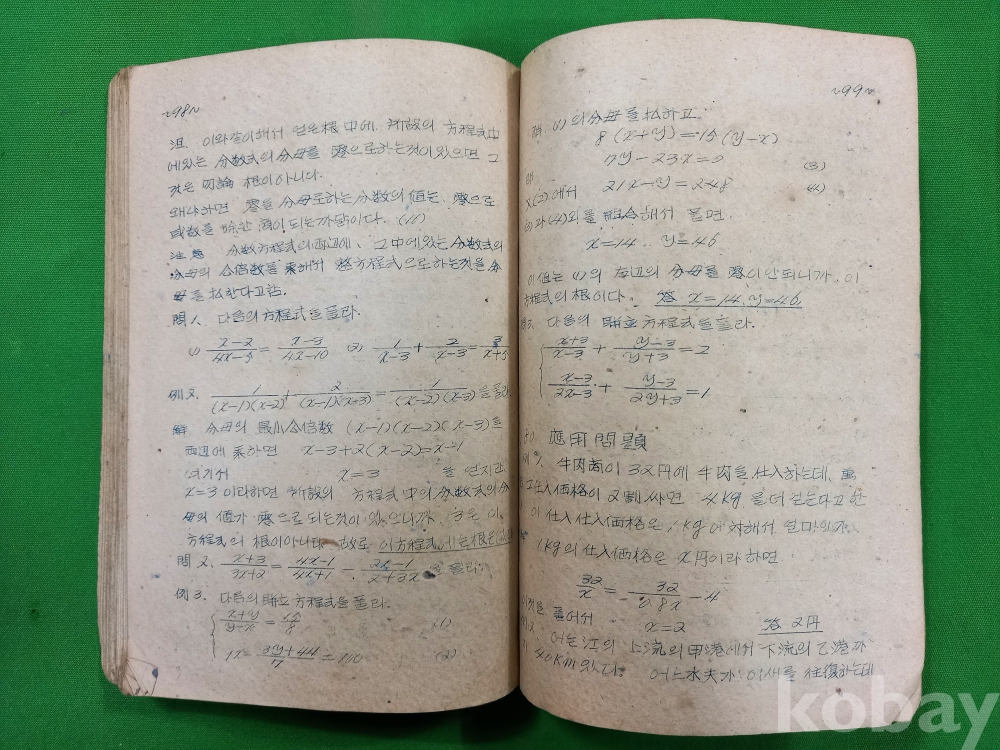 ~98~
注. 이와같이해서 얻은根中에, 所設의 方程式中
에있는 分數式의 分母를 零으로하는것이있으면 그
것은 勿論 根이아니다.
왜냐하면 零을 分母로하는 分數의 値는, 零으로
或數를 除한 商이 되는까닭이다.
注意 分數方程式의 両辺에, 그中에있는 分數式의
分母의 公倍數를 乘해서 整方程式으로하는것을 分
母를 払한다고함.
問1. 다음의 方程式을 풀라.
(1) (x-2)/(4x-5) = (x-3)/(4x-10) (2) 1/(x-3) + 2/(x-3) = 3/(x+5)
例2. 1/(x-1)(x-2) + 2/(x-1)(x+3) = 1/(x-2)(x-3) 을 풀라
解 分母의 最小公倍數 (x-1)(x-2)(x-3)을
両辺에 乘하면 x-3+2(x-2)=x-1
여기서 x=3 을 얻지만
x=3 이라하면 所設의 方程式 中의 分數式의 分
母의 값가 零으로 되는것이 있으니까, 3은 이
方程式의 根이아니다. 故로 이方程式에는根은
問2. (x+3)/(3x+2) = (4x-1)/(4x+1) - 풀라.
例3. 다음의 聯立方程式을 풀라.
(x+y)/(y-x) = 15/8 (1)
(3y+44)/7 = 100 (2)
~99~
(1)의 分母를 払하고
8(x+y)=15(y-x)
7y-23x=0 (3)
(2)에서 21x-y=248 (4)
(3)과 (4)와를 組合해서 풀면.
x=14.. y=46
이値는 (1)의 左辺의 分母를 零이안되니까. 이
方程式의 根이다. 答 x=14. y=46.
3. 다음의 聯立方程式을 풀라.
(x+3)/(x-3) + (y-3)/(y+3) = 2
(x-3)/(2x-3) + (y-3)/(2y+3) = 1
應用問題
1. 牛肉商이 32円에 牛肉을 仕入하는데, 萬
仕入価格이 2割싸면 4kg 을더 얻는다고한
이 仕入仕入価格은 1kg에 対해서 얼마인가.
1kg의 仕入価格은 x円이라 하면
32/x = 32/0.8x - 4
이것을 풀어서 x=2 答 2円
2. 어느江의 上流의 甲港에서 下流의 乙港까
지 40km있다. 이새를 往復하는데
kobay